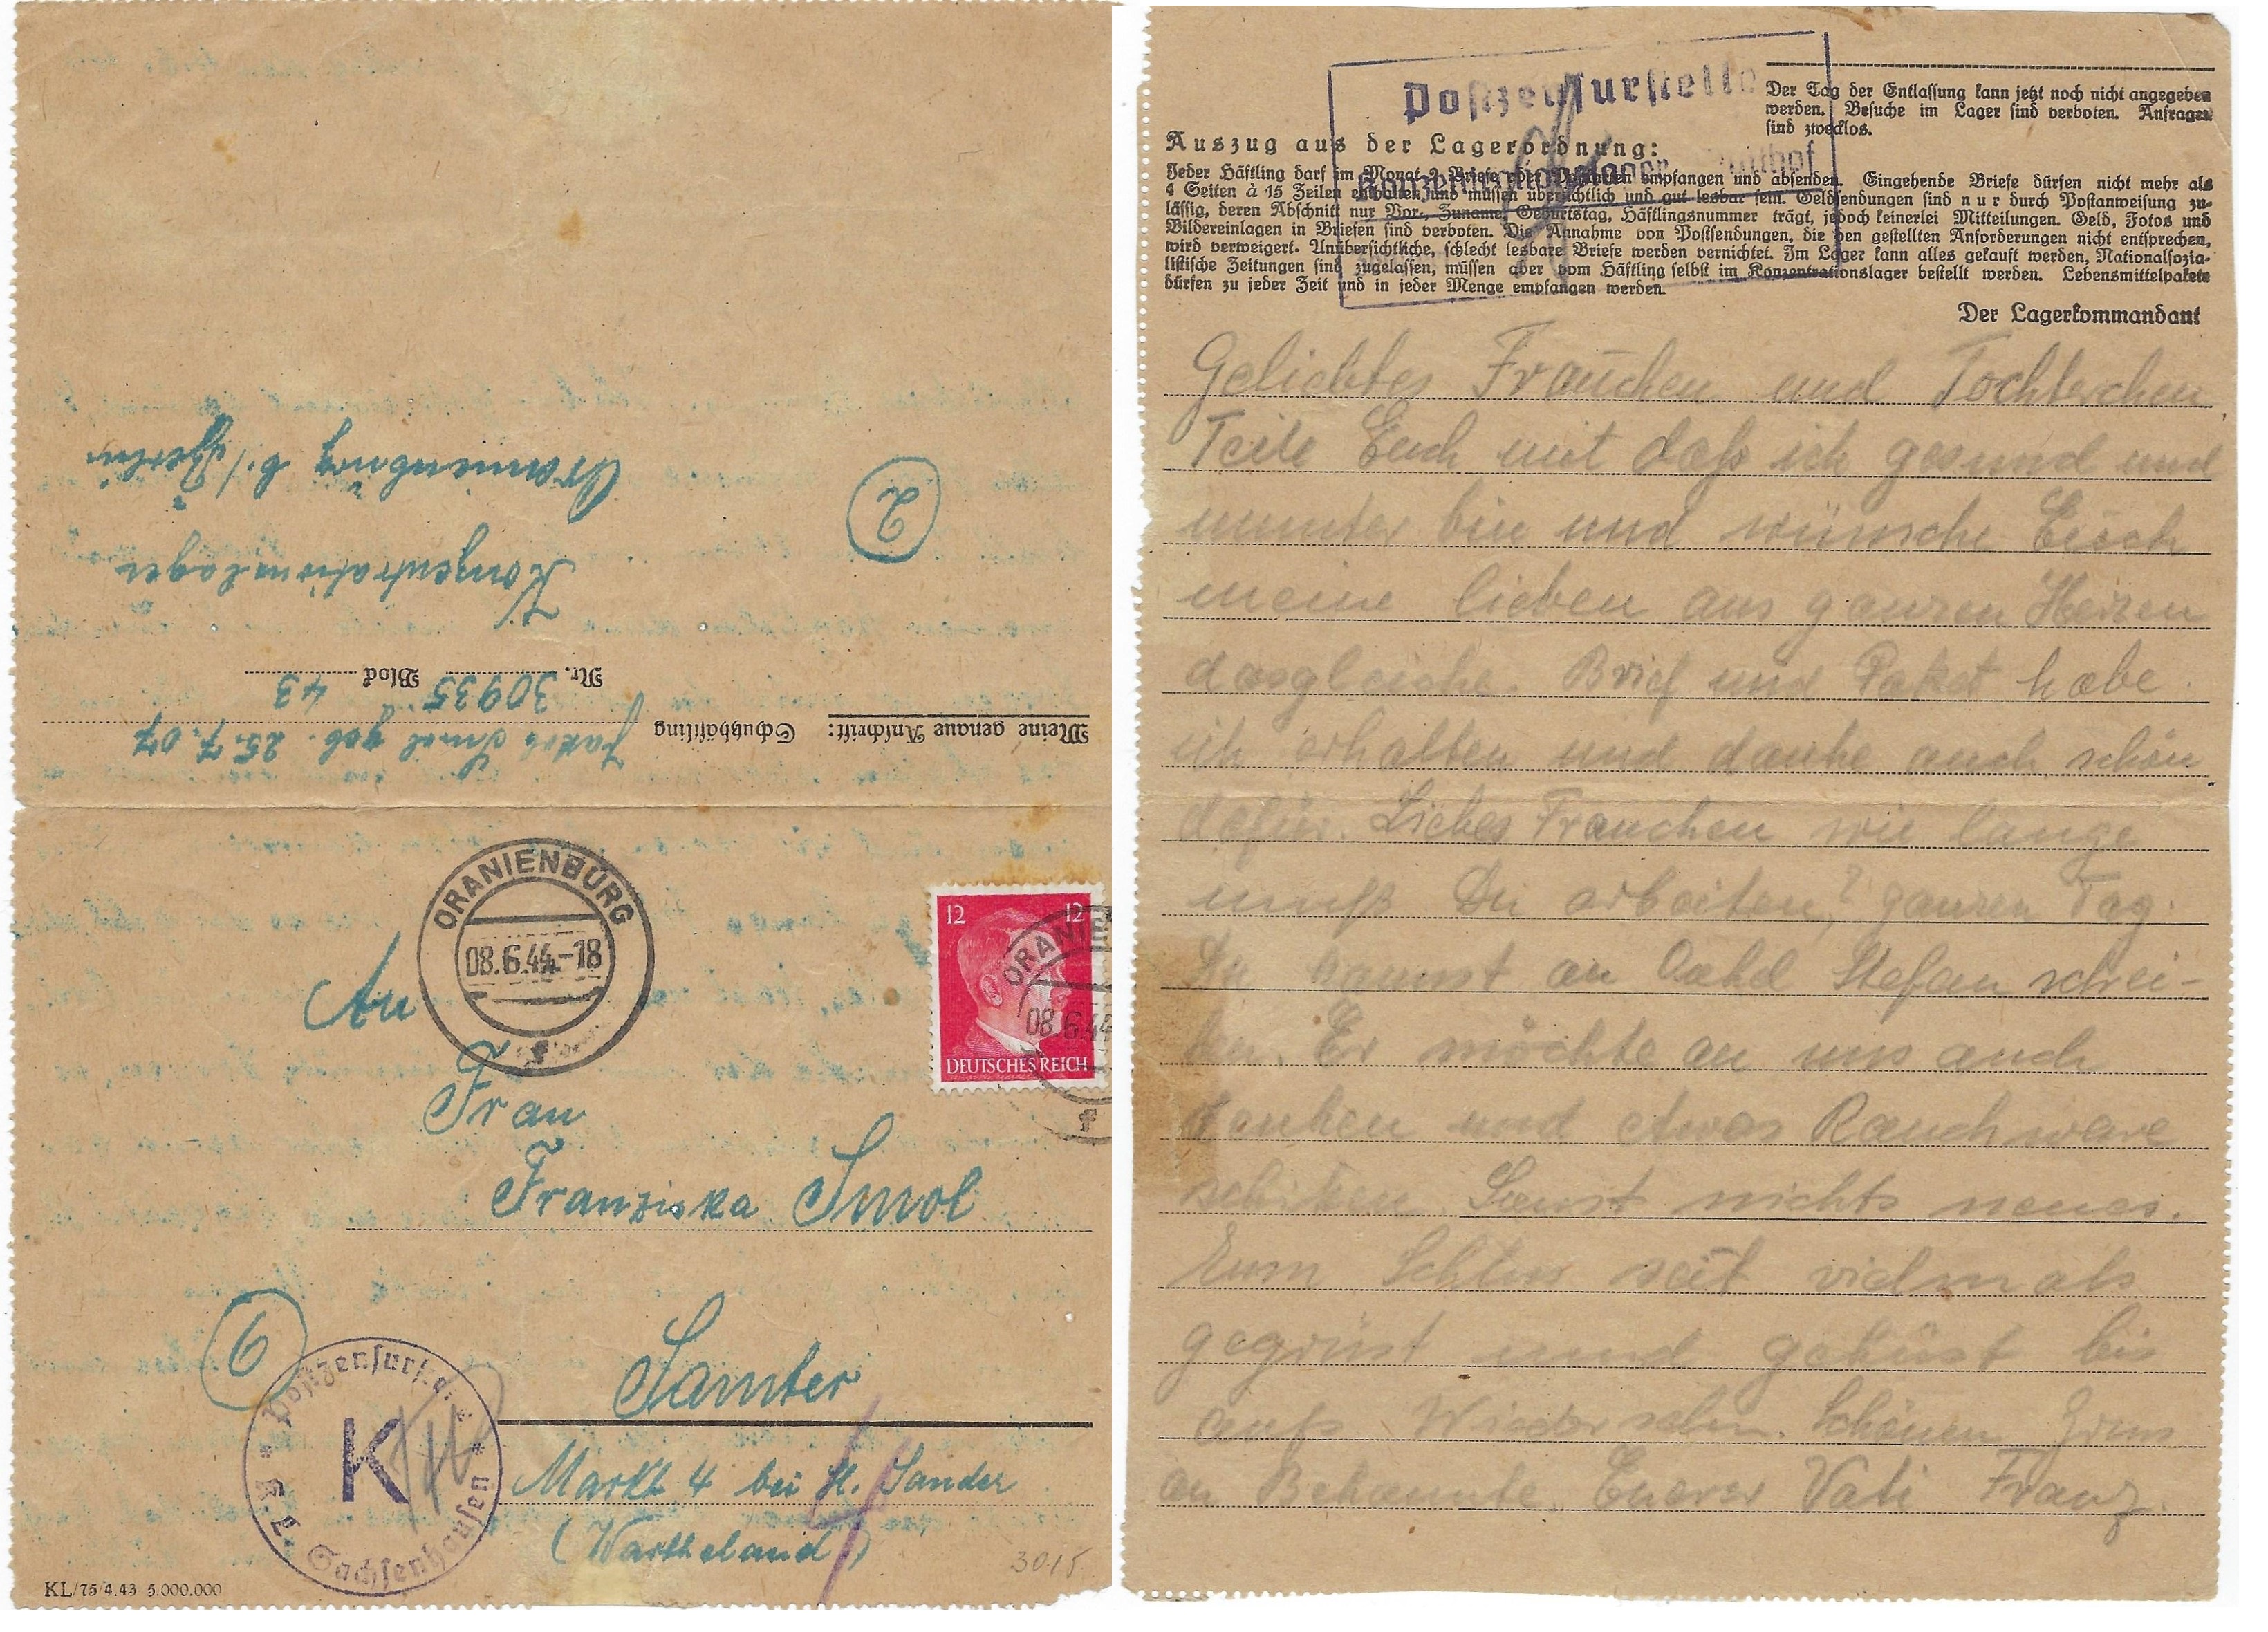 Meine genaue Anschrift:
Schutzhäftling
Jakob Smol geb. 25.7.07
Nr. 30935 Block 43
Konzentrationslager
Oranienburg b./Berlin
2
ORANIENBURG
08.6.44-18
f
12 12
DEUTSCHES REICH
ORANIE
08.6.44
f
An
Frau
Franziska Smol
Samter
Markt 4 bei H. Sander
(Wartheland)
6
Postzensurst
K
K.L. Sachsenhausen
KL/75/4.43 5.000.000
3015
Postzensurstelle
Konzentrationslager
Der Tag der Entlassung kann jetzt noch nicht angegeben
werden. Besuche im Lager sind verboten. Anfragen
sind zwecklos.
Auszug aus der Lagerordnung:
Jeder Häftling darf im Monat 2 Briefe oder Postkarten empfangen und absenden. Eingehende Briefe dürfen nicht mehr als
4 Seiten à 15 Zeilen enthalten und müssen übersichtlich und gut lesbar sein. Geldsendungen sind nur durch Postanweisung zu-
lässig, deren Abschnitt nur Vor-, Zuname, Geburtstag, Häftlingsnummer trägt, jedoch keinerlei Mitteilungen. Geld, Fotos und
Bildereinlagen in Briefen sind verboten. Die Annahme von Postsendungen, die den gestellten Anforderungen nicht entsprechen,
wird verweigert. Unübersichtliche, schlecht lesbare Briefe werden vernichtet. Im Lager kann alles gekauft werden, Nationalsozia-
listische Zeitungen sind zugelassen, müssen aber vom Häftling selbst im Konzentrationslager bestellt werden. Lebensmittelpakete
dürfen zu jeder Zeit und in jeder Menge empfangen werden.
Der Lagerkommandant
Geliebtes Frauchen und Tochterchen
Teile Euch mit daß ich gesund und
munter bin und wünsche Euch
meine lieben aus ganzen Herzen
dasgleiche. Brief und Paket habe
ich erhalten und danke auch schön
dafür. Liebes Frauchen wie lange
mußt Du arbeiten? ganzen Tag.
Du kannst an Onkel Stefan schrei-
ben. Er möchte an uns auch
denken und etwas Rauchware
schiken. Sonst nichts neues.
Zum Schlus seit vielmals
gegrüst und geküst bis
aufs Wiedersehn. Schönen Grus
an Bekannte. Euerer Vati Franz.